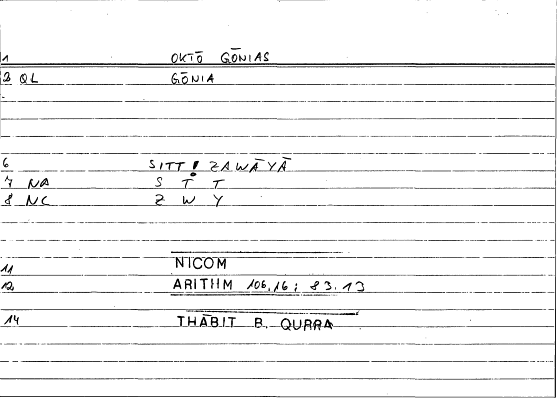 1 OKTŌ GŌNIAS
2 QL GŌNIA
6 SITT! ZAWĀYĀ
7 NA S T T
8 NC Z W Y
11 NICOM
12 ARITHM 106,16; 83.13
14 THĀBIT B. QURRA